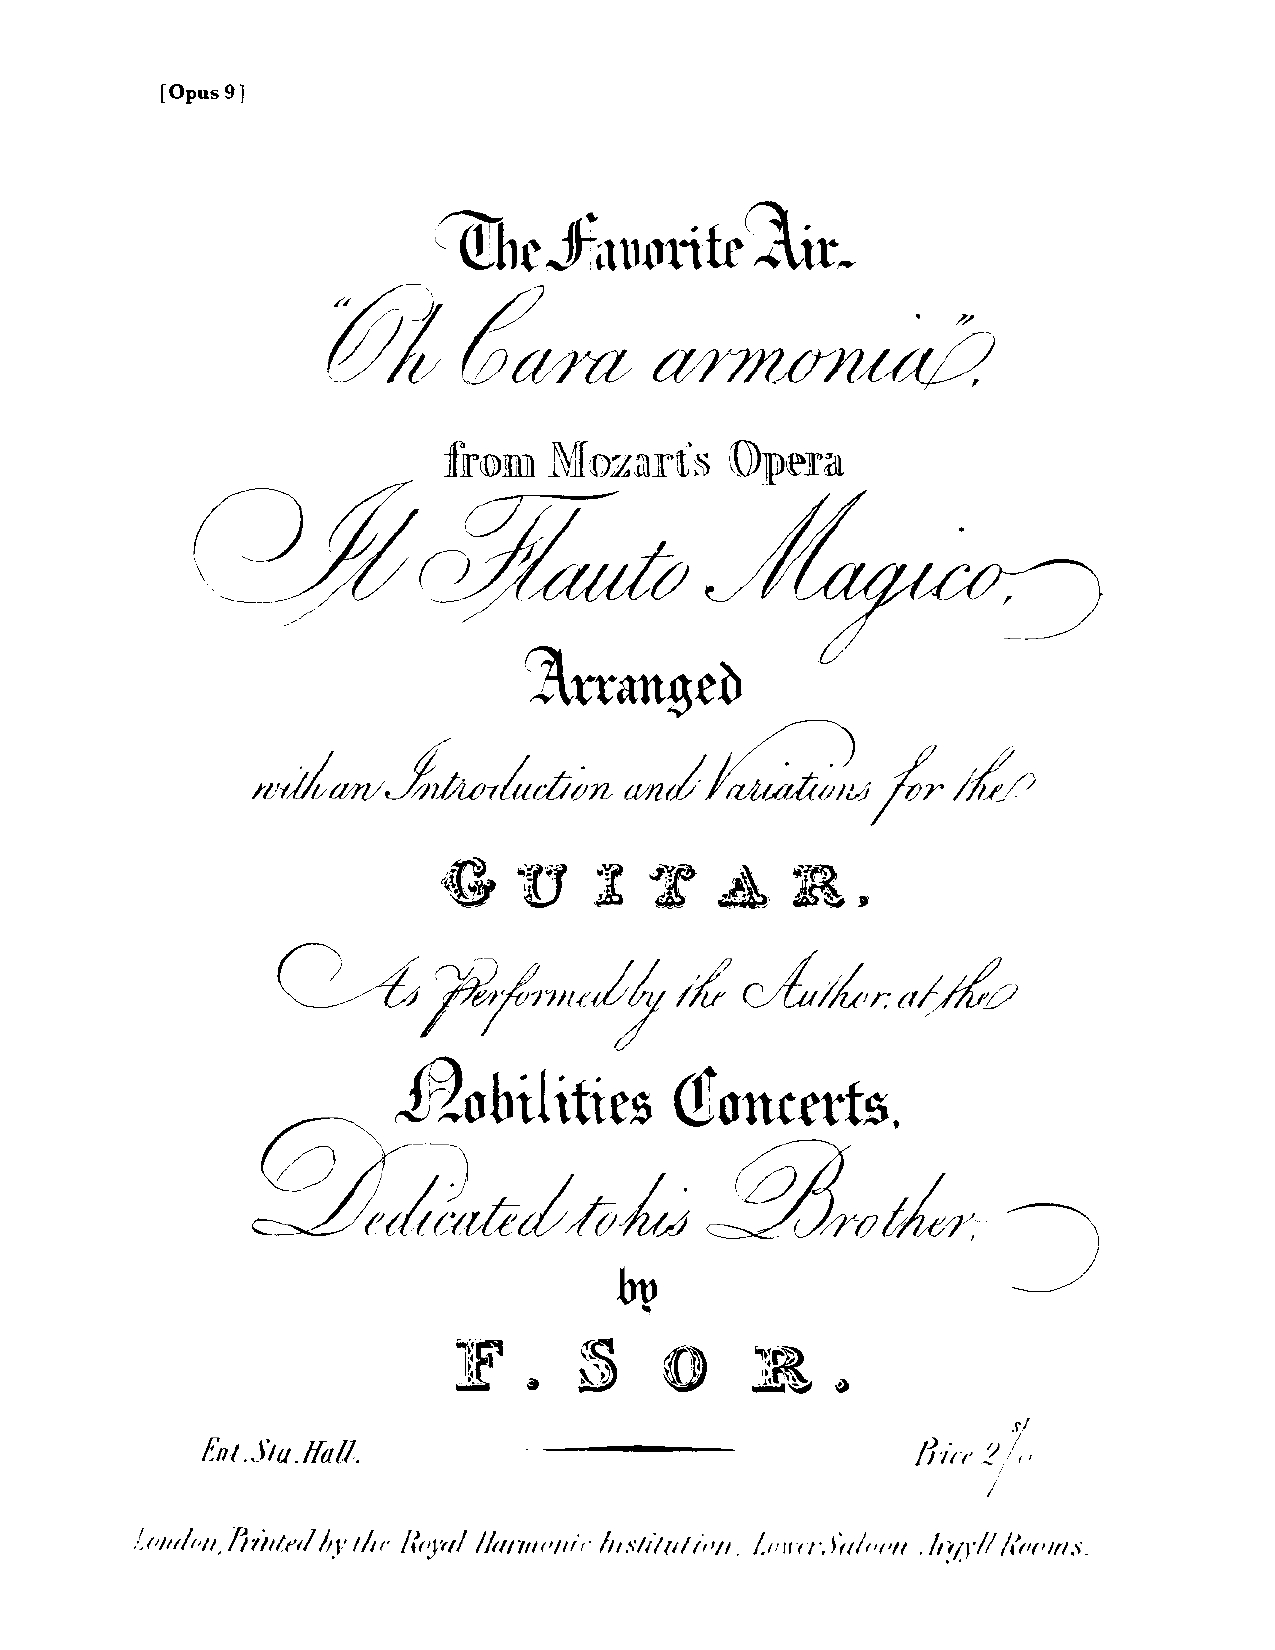 [Opus 9]
The Favorite Air.
"Oh Cara armonia",
from Mozart's Opera
Il Flauto Magico,
Arranged
with an Introduction and Variations for the
GUITAR,
As Performed by the Author, at the
Nobilities Concerts,
Dedicated to his Brother,
by
F. SOR.
Ent. Sta. Hall. Price 2/
London, Printed by the Royal Harmonic Institution, Lower Saloon Argyll Rooms.